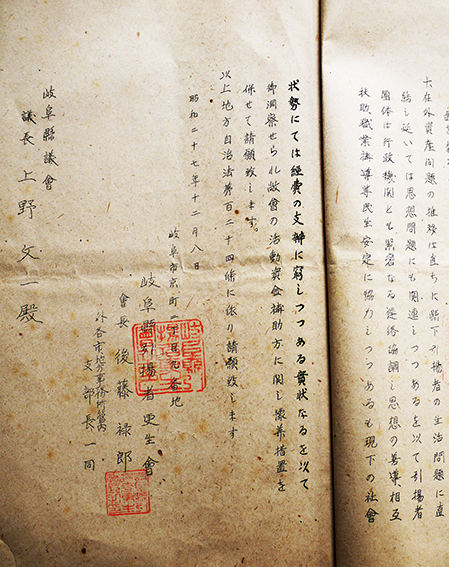 大在外資産問題の推移は直ちに縣下引揚者の生活問題に直
結し延いては思想問題にも関連しつつあるを以て引揚者
団体は行政機関とも緊密なる連絡協調し思想の善導相互
扶助職業補導等民生安定に協力しつつあるも現下の社會
状勢にては経費の支辨に窮しつつある實状なるを以て
御洞察せられ敝會の活動資金補助方に関し 措置を
併せて請願致します。
以上地方自治法第百二十四條に依り請願致します
昭和二十七年十二月八日
岐阜市京町 丁目九番地
岐阜縣引揚者更生會
會長 後藤禄郎
外各市地方事務所管内
支部長一同
岐阜縣議會
議長 上野文一殿